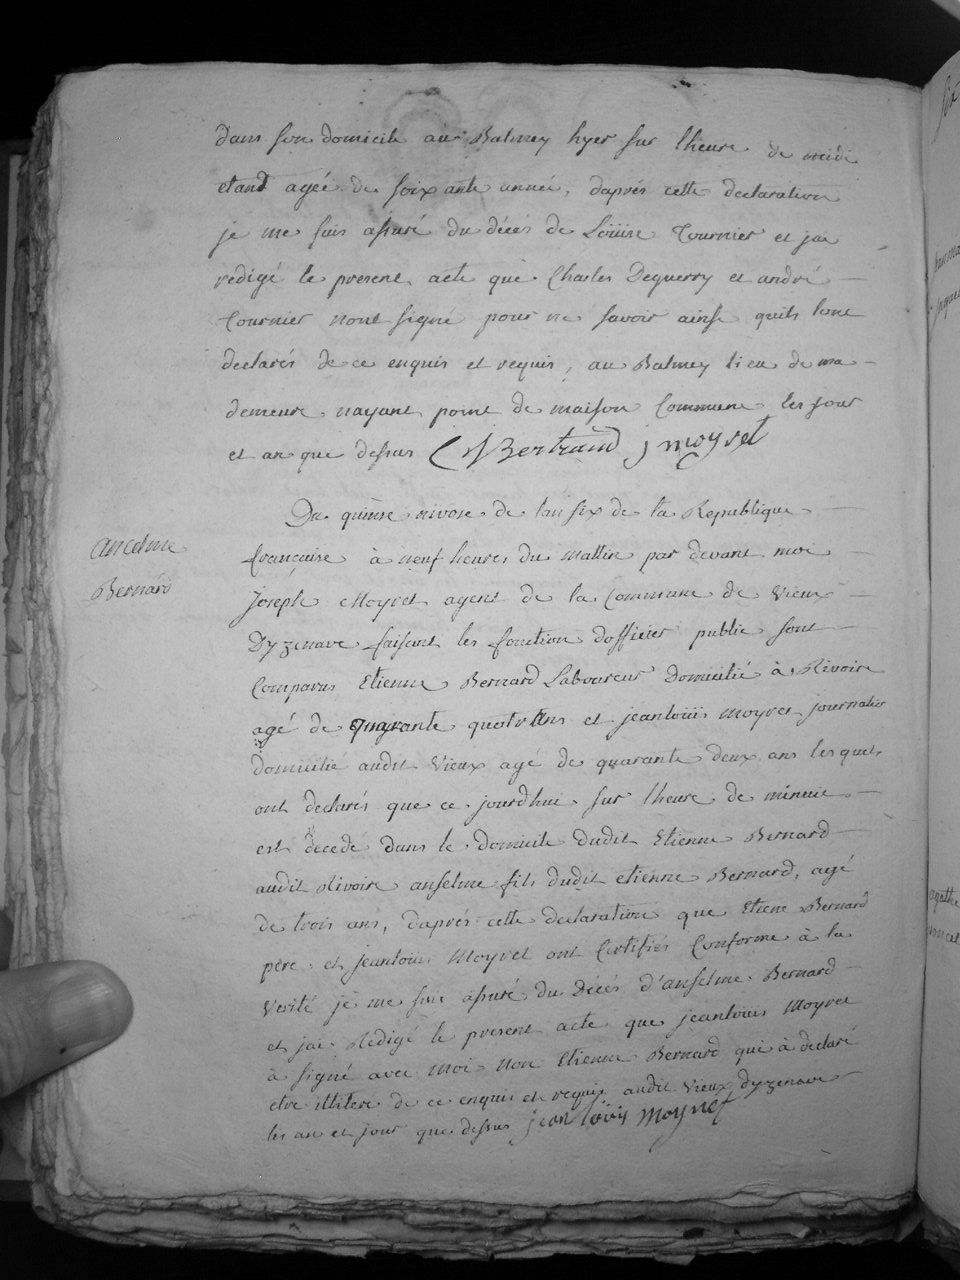 dans son domicile au Balmey hyer sur lheure de midi
etant agée de soixante année, daprés cette declaration
je me suis assuré du décés de Loüise Tournier et jai
redigé le present acte que Charles Deguerry et andré
Tournier nont signé pour ne savoir ainsi quils lont
declarés de ce enquis et requis, au Balmey lieu de ma
demeure nayant point de maison Commune les jour
et an que dessus Bertraud j moyret
Du quinse nivose de lan six de la Republique
francaise à neuf heures du mattin par devant moi
Joseph Moyret agent de la Commune de Vieux
Dyzenave faisant les fonction dofficier public sont
Comparus Etienne Bernard Laboureur domicilié à Rivoire
agé de quarante quatre ans et jeanloüis Moyret journalier
domicilié audit Vieux agé de quarante deux ans les quels
ont declarés que ce jourdhui sur lheure de minuie
est decedé dans le domicile dudit Etienne Bernard
audit Rivoire anselme fils dudit etienne Bernard, agé
de trois ans, daprés cette declaration que Etiene Bernard
pére et jeanlouis Moyret ont Certifiés Conforme à la
Verité je me suis assuré du Décés d'anselme Bernard
et jai Rédigé le present acte que jeanloüis Moyret
à signé avec moi non Etienne Bernard qui à declaré
etre illitere de ce enquis et requis audit Vieux dyzenave
les an et jour que dessus jean loüis moyret
ancelme
Bernard
agathe